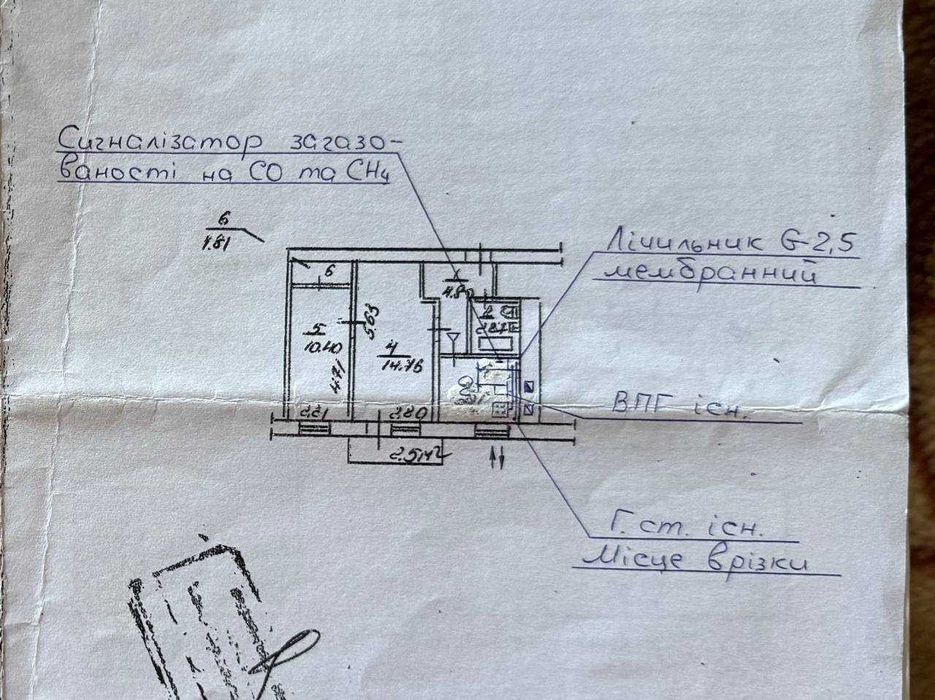 Сигналізатор загазо-
ваності на СО та СН₄
6
1.81
Лічильник G-2,5
мембранний
6
1
4.8
2
5
10.40
5.63
4
14.76
4.71
ВПГ існ.
2.21
2.80
2.5м²
Г. ст. існ.
Місце врізки